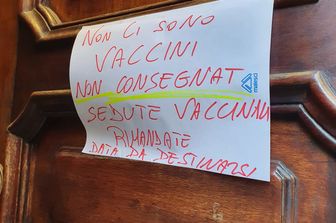 NON CI SONO
VACCINI
NON CONSEGNAT
SEDUTE VACCINALI
RIMANDATE
DATA DA DESTINARSI